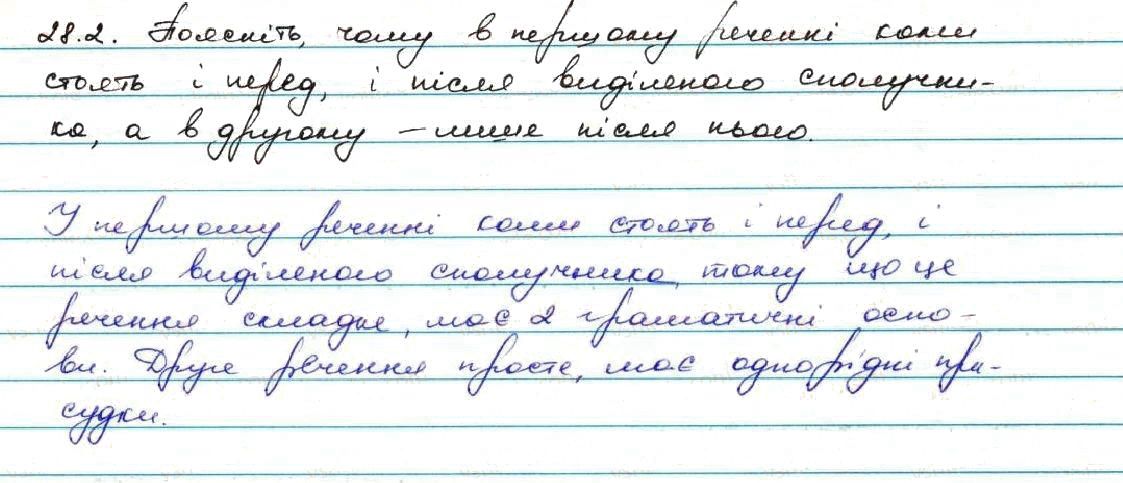 28.2. Поясніть, чому в першому реченні коми
стоять і перед, і після виділеного сполучни-
ка, а в другому – лише після нього.
У першому реченні коми стоять і перед, і
після виділеного сполучника, тому що це
речення складне, має 2 граматичні осно-
ви. Друге речення просте, має однорідні при-
судки.